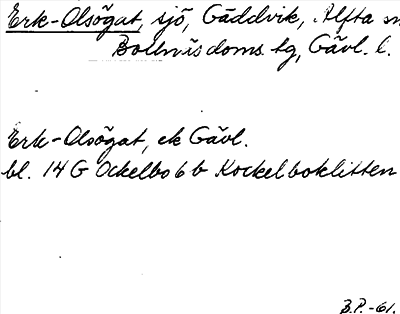 Erk-Olsögat, sjö, Gäddvik, Alfta sn
Bollnäs doms. tg, Gävl. l.
Erk-Olsögat, ek Gävl.
bl. 14 G Ockelbo 6 b Kockelboklitten
B.P.-61.